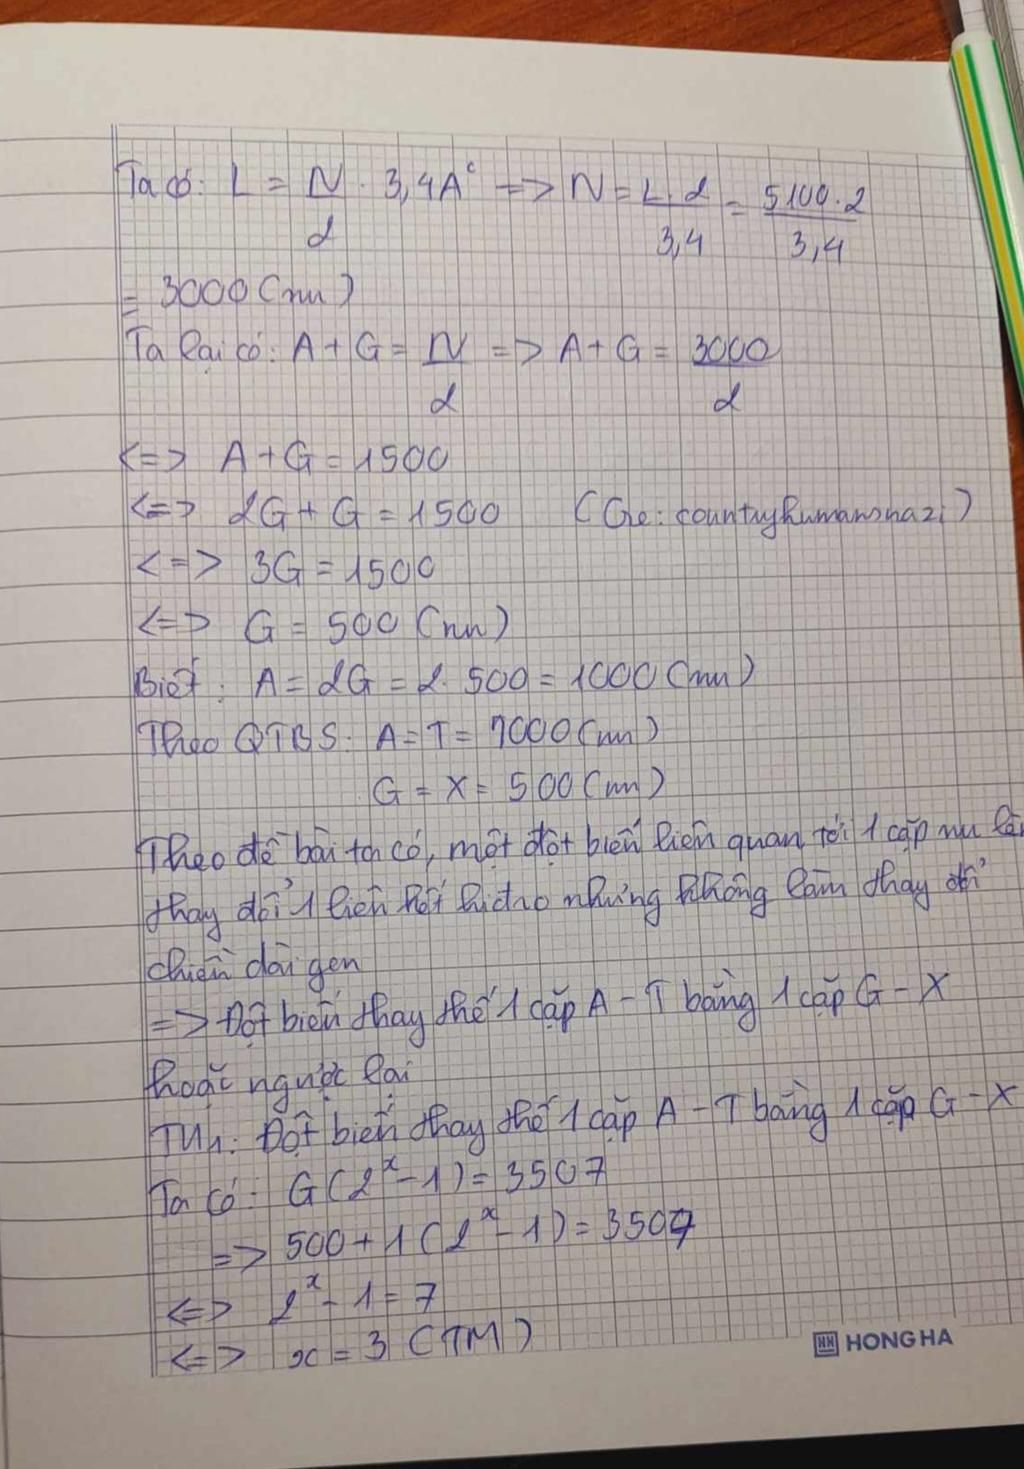 Ta có: L = N/2 . 3,4A° => N = L.2/3,4 = 5100.2/3,4
= 3000 (nu)
Ta lại có: A + G = N/2 => A + G = 3000/2
<=> A + G = 1500
<=> 2G + G = 1500 (Cre: countryhumansnazi)
<=> 3G = 1500
<=> G = 500 (nu)
Biết: A = 2G = 2. 500 = 1000 (nu)
Theo QTBS: A = T = 1000 (nu)
G = X = 500 (nu)
Theo đề bài ta có, một đột biến liên quan tới 1 cặp nu làm
thay đổi 1 liên kết hiđro nhưng không làm thay đổi
chiều dài gen
=> Đột biến thay thế 1 cặp A - T bằng 1 cặp G - X
hoặc ngược lại
TH1: Đột biến thay thế 1 cặp A - T bằng 1 cặp G - X
Ta có: G(2^x - 1) = 3507
=> 500 + 1 (2^x - 1) = 3507
<=> 2^x - 1 = 7
<=> x = 3 (TM)
HH HONG HA